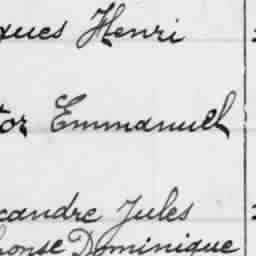 ques Henri
tor Emmanuel
xandre Jules
honse Dominique